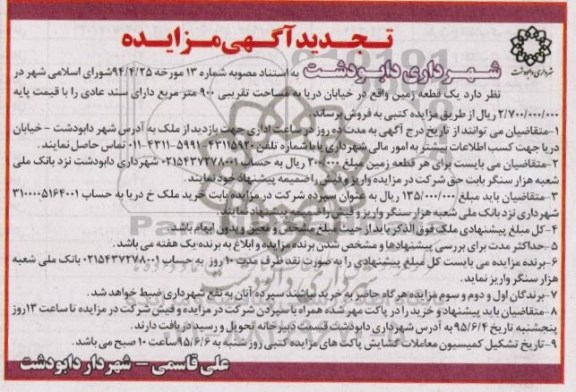 تجدید آگهی مزایده
شهرداری دابودشت
شهرداری دابودشت به استناد مصوبه شماره ۱۳ مورخه ۹۴/۴/۲۵ شورای اسلامی شهر در
نظر دارد یک قطعه زمین واقع در خیابان دریا به مساحت تقریبی ۹۰۰ متر مربع دارای سند عادی را با قیمت پایه
۲/۷۰۰/۰۰۰/۰۰۰ ریال از طریق مزایده کتبی به فروش برساند.
۱-متقاضیان می توانند از تاریخ درج آگهی به مدت ده روز در ساعت اداری جهت بازدید از ملک به آدرس شهر دابودشت - خیابان
دریا جهت کسب اطلاعات بیشتر به امور مالی شهرداری یا با شماره تلفن ۴۳۱۱۵۹۲۰ ۵۹۹۱-۴۳۱۱-۰۱۱ تماس حاصل نمایند.
۲-متقاضی می بایست برای هر قطعه زمین مبلغ ۲۰۰/۰۰۰ ریال به حساب ۰۲۱۵۴۳۷۲۷۸۰۰۱ شهرداری دابودشت نزد بانک ملی
شعبه هزار سنگر بابت حق شرکت در مزایده واریز و فیش را ضمیمه پیشنهاد خود نمایند.
۳-متقاضیان باید مبلغ ۱۳۵/۰۰۰/۰۰۰ ریال به عنوان سپرده شرکت در مزایده بابت خرید ملک خ دریا به حساب ۳۱۰۰۰۰۵۱۶۴۰۰۱
شهرداری نزد بانک ملی شعبه هزار سنگر واریز و فیش را ضمیمه پیشنهاد نمایند.
۴-کل مبلغ پیشنهادی ملک فوق الذکر باید از حیث مبلغ مشخص و معین و بدون ابهام باشد.
۵-حداکثر مدت برای بررسی پیشنهادها و مشخص شدن برنده مزایده و ابلاغ به برنده یک هفته می باشد.
۶-برنده مزایده می بایست کل مبلغ پیشنهادی را به صورت نقد ظرف مدت ۱۰ روز به حساب ۰۲۱۵۴۳۷۲۷۸۰۰۱ بانک ملی شعبه
هزار سنگر واریز نماید.
۷-برندگان اول و دوم و سوم مزایده هر گاه حاضر به خرید نباشند سپرده آنان به نفع شهرداری ضبط خواهد شد.
۸-متقاضیان باید پیشنهاد و خرید را در پاکت مهر شده همراه با سپردن شرکت در مزایده و فیش شرکت در مزایده تا ساعت ۱۳ روز
پنجشنبه تاریخ ۹۵/۶/۴ به آدرس شهرداری دابودشت قسمت دبیرخانه تحویل و رسید دریافت دارند.
۹-تاریخ تشکیل کمیسیون معاملات گشایش پاکت های مزایده کتبی روز شنبه به ۹۵/۶/۶ ساعت ۱۰ صبح می باشد.
علی قاسمی - شهردار دابودشت